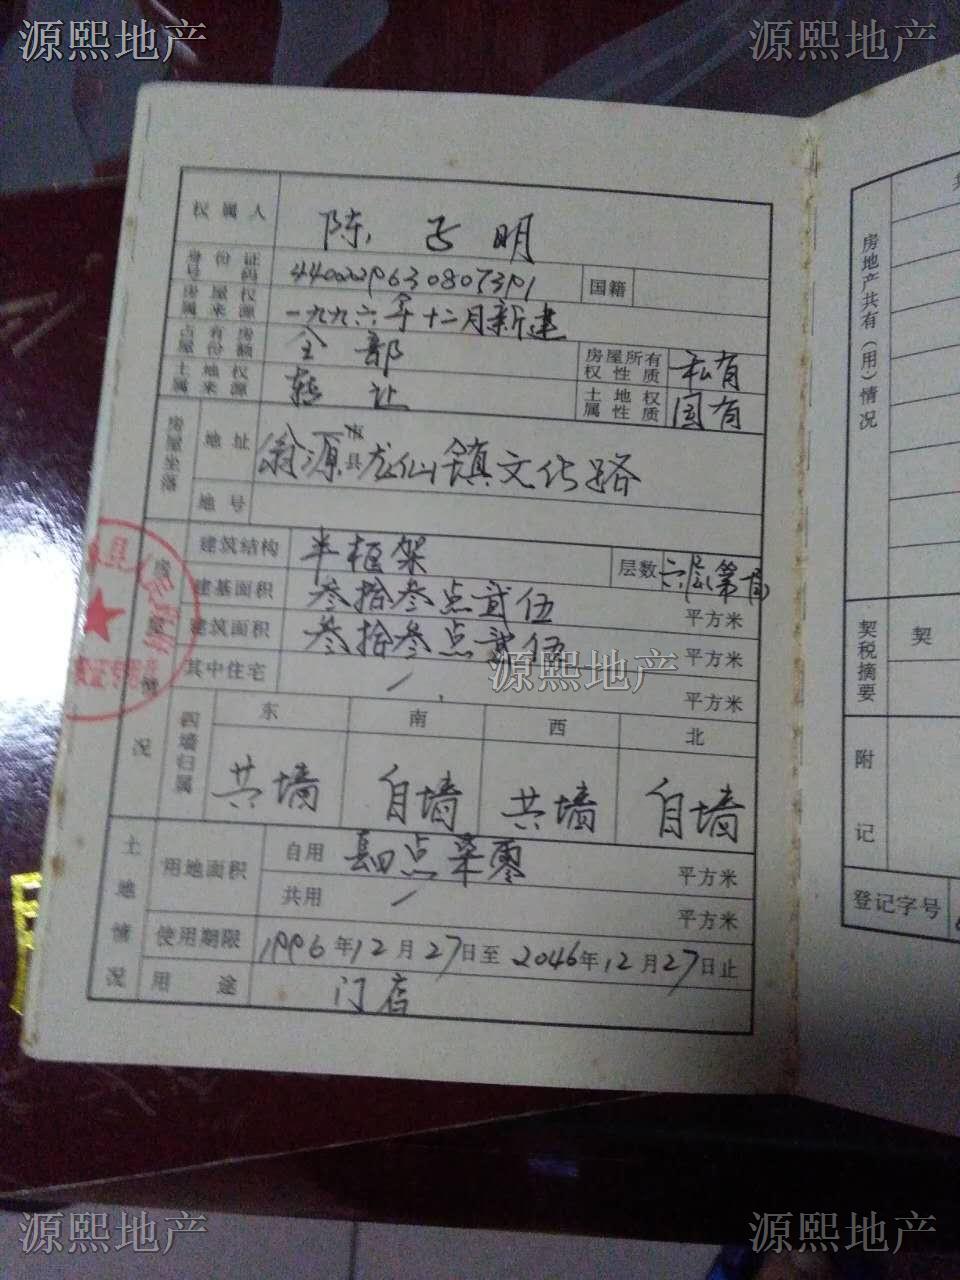 源熙地产
源熙地产
权属人 陈 子 明
身份证号码 国籍
房屋权属来源 一九九六年十二月新建
占有房屋份额 全部 房屋所有权性质 私有
土地权属来源 转让 土地权属性质 国有
房屋坐落 地址 翁源市县龙仙镇文化路
地号
房屋情况 建筑结构 半框架 层数 六层(第
建基面积 叁拾叁点贰伍 平方米
建筑面积 叁拾叁点贰伍 平方米
其中住宅 / 平方米
源熙地产
四墙归属 东 南 西 北
共墙 自墙 共墙 自墙
土地情况 用地面积 自用 点 零 平方米
共用 / 平方米
使用期限 1996年12月27日至2046年12月27日止
用途 门店
房地产共有(用)情况
契税摘要 契
附记
登记字号
源熙地产
源熙地产